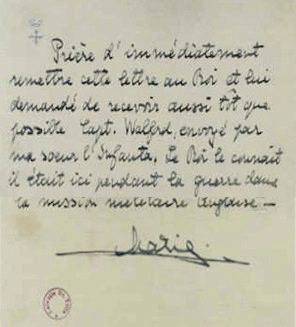 Prière d'immédiatement
remettre cette lettre au Roi et lui
demandé de recevoir aussi tôt que
possible Capt. Walford, envoyé par
ma soeur l'Infanta. Le Roi le connait
il était ici pendant la guerre dans
la mission militaire anglaise —
Marie